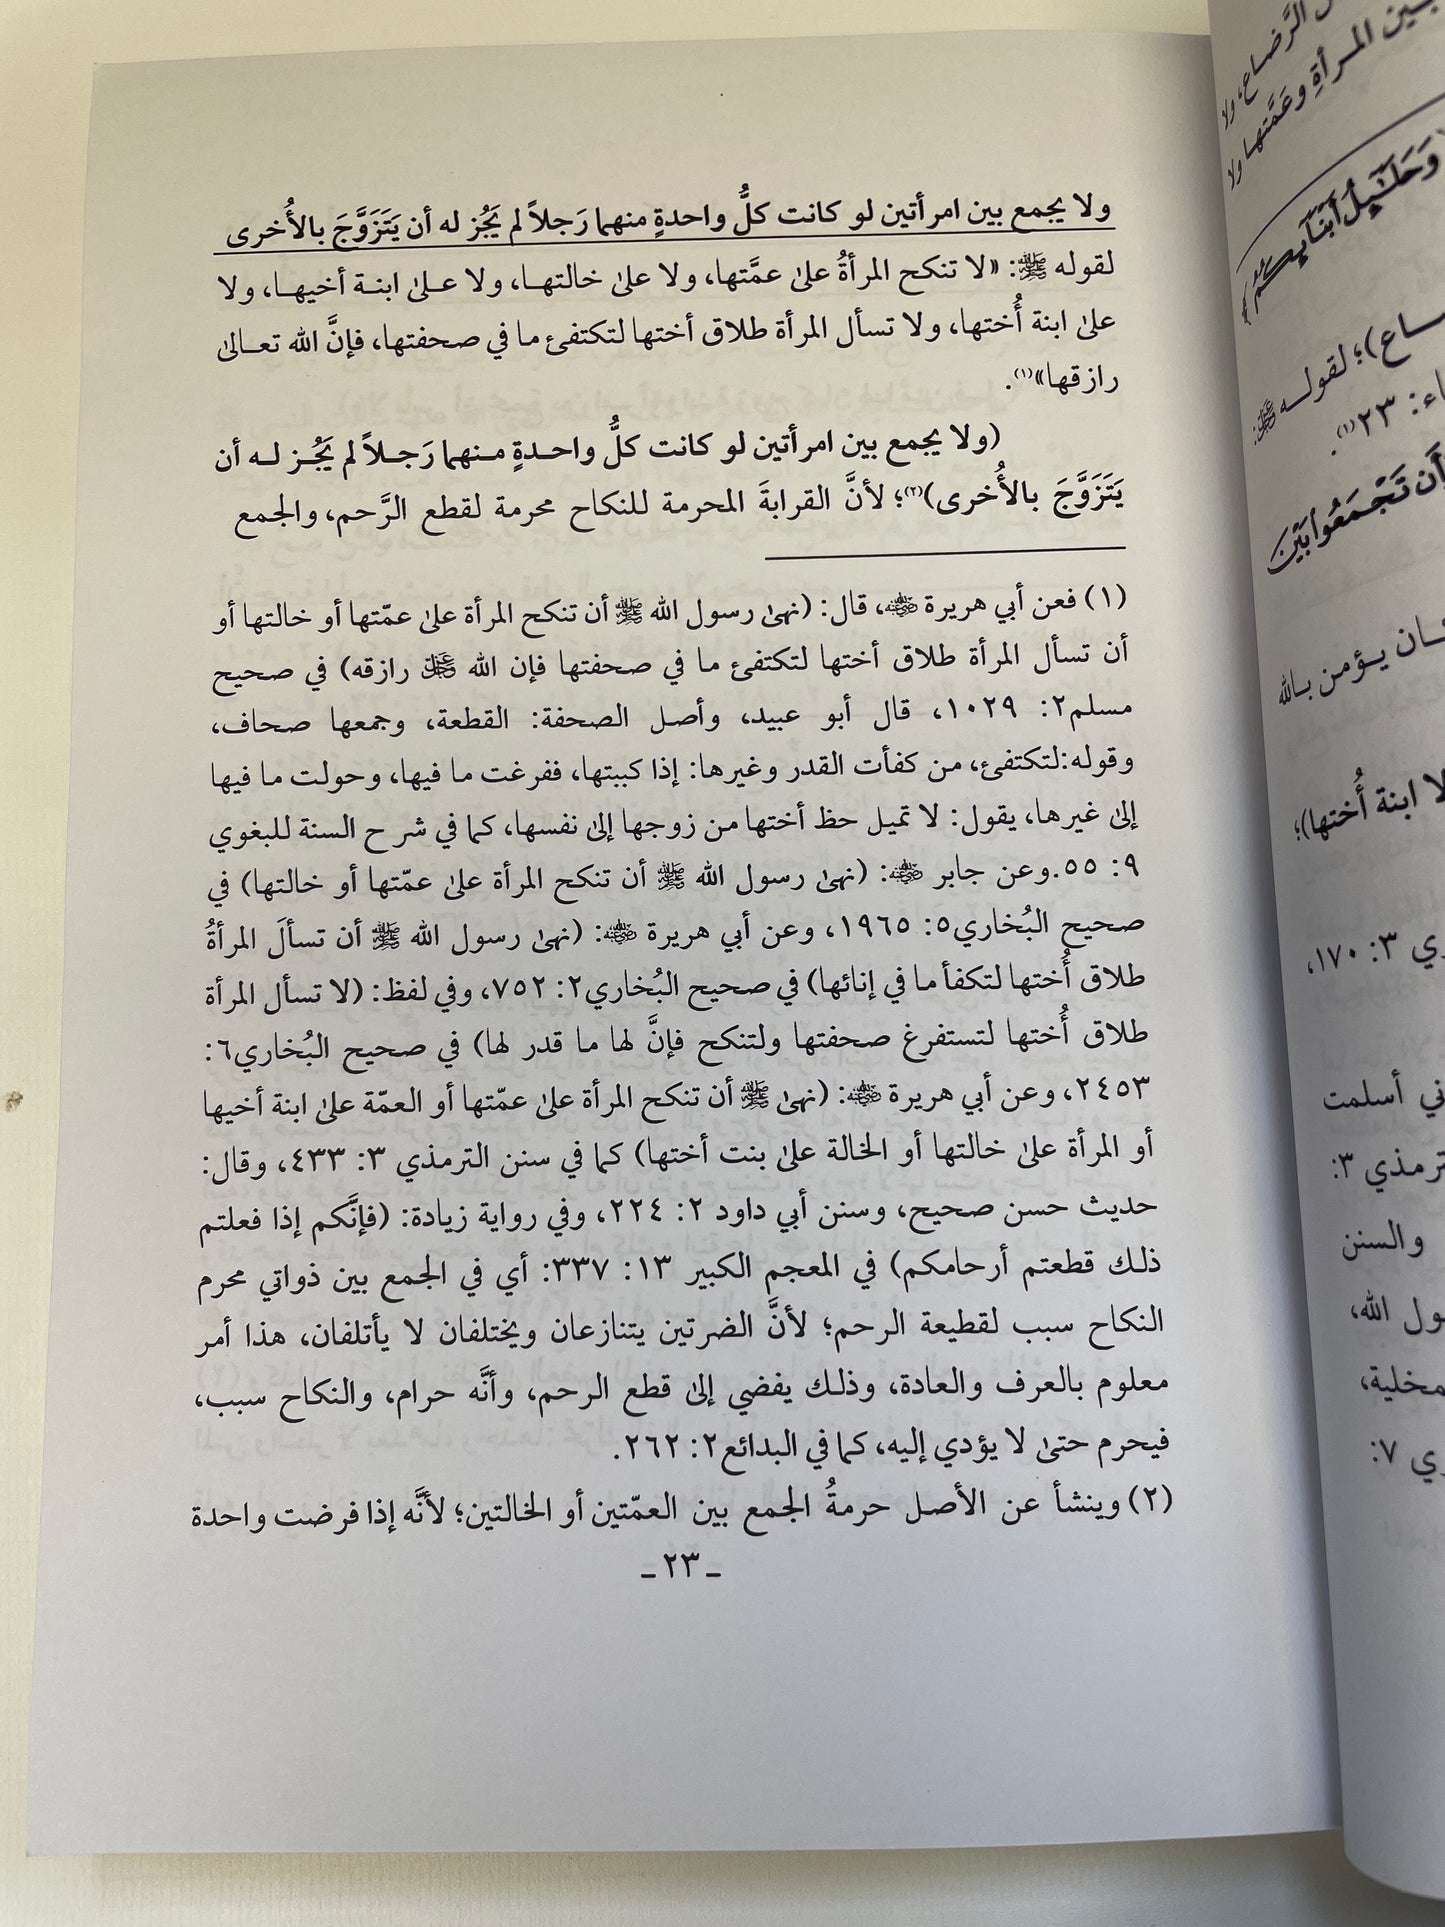 ولا يجمع بين امرأتين لو كانت كلُّ واحدةٍ منهما رَجلاً لم يَجُز له أن يَتَزَوَّجَ بالأُخرى
لقوله ﷺ: «لا تنكح المرأةُ على عمَّتها، ولا على خالتها، ولا على ابنة أخيها، ولا
على ابنة أُختها، ولا تسأل المرأة طلاق أختها لتكتفئ ما في صحفتها، فإنَّ الله تعالى
رازقها»(١).
(ولا يجمع بين امرأتين لو كانت كلُّ واحدةٍ منهما رَجلاً لم يَجُز له أن
يَتَزَوَّجَ بالأُخرى)(٢)؛ لأنَّ القرابةَ المحرمة للنكاح محرمة لقطع الرَّحم، والجمع
(١) فعن أبي هريرة ﷺ، قال: (نهى رسول الله ﷺ أن تنكح المرأة على عمّتها أو خالتها أو
أن تسأل المرأة طلاق أختها لتكتفئ ما في صحفتها فإن الله ﷻ رازقه) في صحيح
مسلم٢: ١٠٢٩، قال أبو عبيد، وأصل الصحفة: القطعة، وجمعها صحاف،
وقوله:لتكتفئ، من كفأت القدر وغيرها: إذا كببتها، ففرغت ما فيها، وحولت ما فيها
إلى غيرها، يقول: لا تميل حظ أختها من زوجها إلى نفسها، كما في شرح السنة للبغوي
٩: ٥٥.وعن جابر رضي الله عنه: (نهى رسول الله ﷺ أن تنكح المرأة على عمّتها أو خالتها) في
صحيح البُخاري٥: ١٩٦٥، وعن أبي هريرة رضي الله عنه: (نهى رسول الله ﷺ أن تسألَ المرأةُ
طلاق أُختها لتكفأ ما في إنائها) في صحيح البُخاري٢: ٧٥٢، وفي لفظ: (لا تسأل المرأة
طلاق أُختها لتستفرغ صحفتها ولتنكح فإنَّ لها ما قدر لها) في صحيح البُخاري٦:
٢٤٥٣، وعن أبي هريرة رضي الله عنه: (نهى ﷺ أن تنكح المرأة على عمّتها أو العمّة على ابنة أخيها
أو المرأة على خالتها أو الخالة على بنت أختها) كما في سنن الترمذي ٣: ٤٣٣، وقال:
حديث حسن صحيح، وسنن أبي داود ٢: ٢٢٤، وفي رواية زيادة: (فإنَّكم إذا فعلتم
ذلك قطعتم أرحامكم) في المعجم الكبير ١٣: ٣٣٧: أي في الجمع بين ذواتي محرم
النكاح سبب لقطيعة الرحم؛ لأنَّ الضرتين يتنازعان ويختلفان لا يأتلفان، هذا أمر
معلوم بالعرف والعادة، وذلك يفضي إلى قطع الرحم، وأنَّه حرام، والنكاح سبب،
فيحرم حتى لا يؤدي إليه، كما في البدائع٢: ٢٦٢.
(٢) وينشأ عن الأصل حرمةُ الجمع بين العمّتين أو الخالتين؛ لأنَّه إذا فرضت واحدة
ـ ٢٣ ـ
الرَّضاع، ولا
بين المرأةِ وعَمَّتها ولا
وَحَلَٰٓئِلُ أَبْنَآئِكُمُ
ـاع)؛ لقوله ﷺ:
ـاء: ٢٣(١).
أَن تَجْمَعُوا بَيْنَ
ـان يؤمن بالله
لا ابنة أُختها)؛
ـي ٣: ١٧٠،
ـني أسلمت
ـترمذي ٣:
والسنن
ـول الله،
ـمخلية،
ـري ٧: